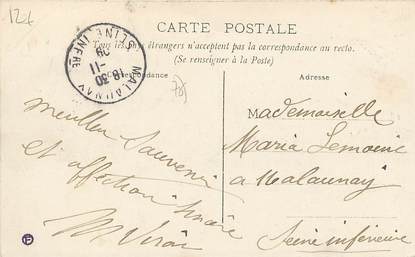 CARTE POSTALE
Tous les pays étrangers n'acceptent pas la correspondance au recto.
(Se renseigner à la Poste)
Correspondance
Adresse
MALAUNAY
SEINE INFRE
18-30
-11
09
meilleur Souvenir
et affection sincère
Mademoiselle
Maria Lemoine
a Malaunay
Seine inférieure